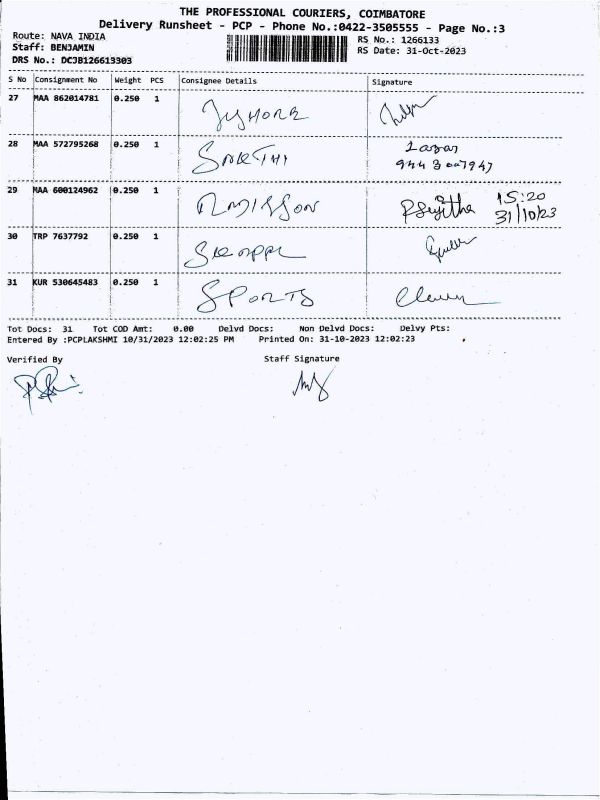 THE PROFESSIONAL COURIERS, COIMBATORE
Delivery Runsheet - PCP - Phone No.:0422-3505555 - Page No.:3
Route: NAVA INDIA
RS No.: 1266133
Staff: BENJAMIN
RS Date: 31-Oct-2023
DRS No.: DCJB126613303
S No Consignment No Weight PCS Consignee Details Signature
27 MAA 862014781 0.250 1
28 MAA 572795268 0.250 1
29 MAA 600124962 0.250 1 15:20
31/10/23
30 TRP 7637792 0.250 1
31 KUR 530645483 0.250 1 SPORTS
Tot Docs: 31 Tot COD Amt: 0.00 Delvd Docs: Non Delvd Docs: Delvy Pts:
Entered By :PCPLAKSHMI 10/31/2023 12:02:25 PM Printed On: 31-10-2023 12:02:23
Verified By Staff Signature